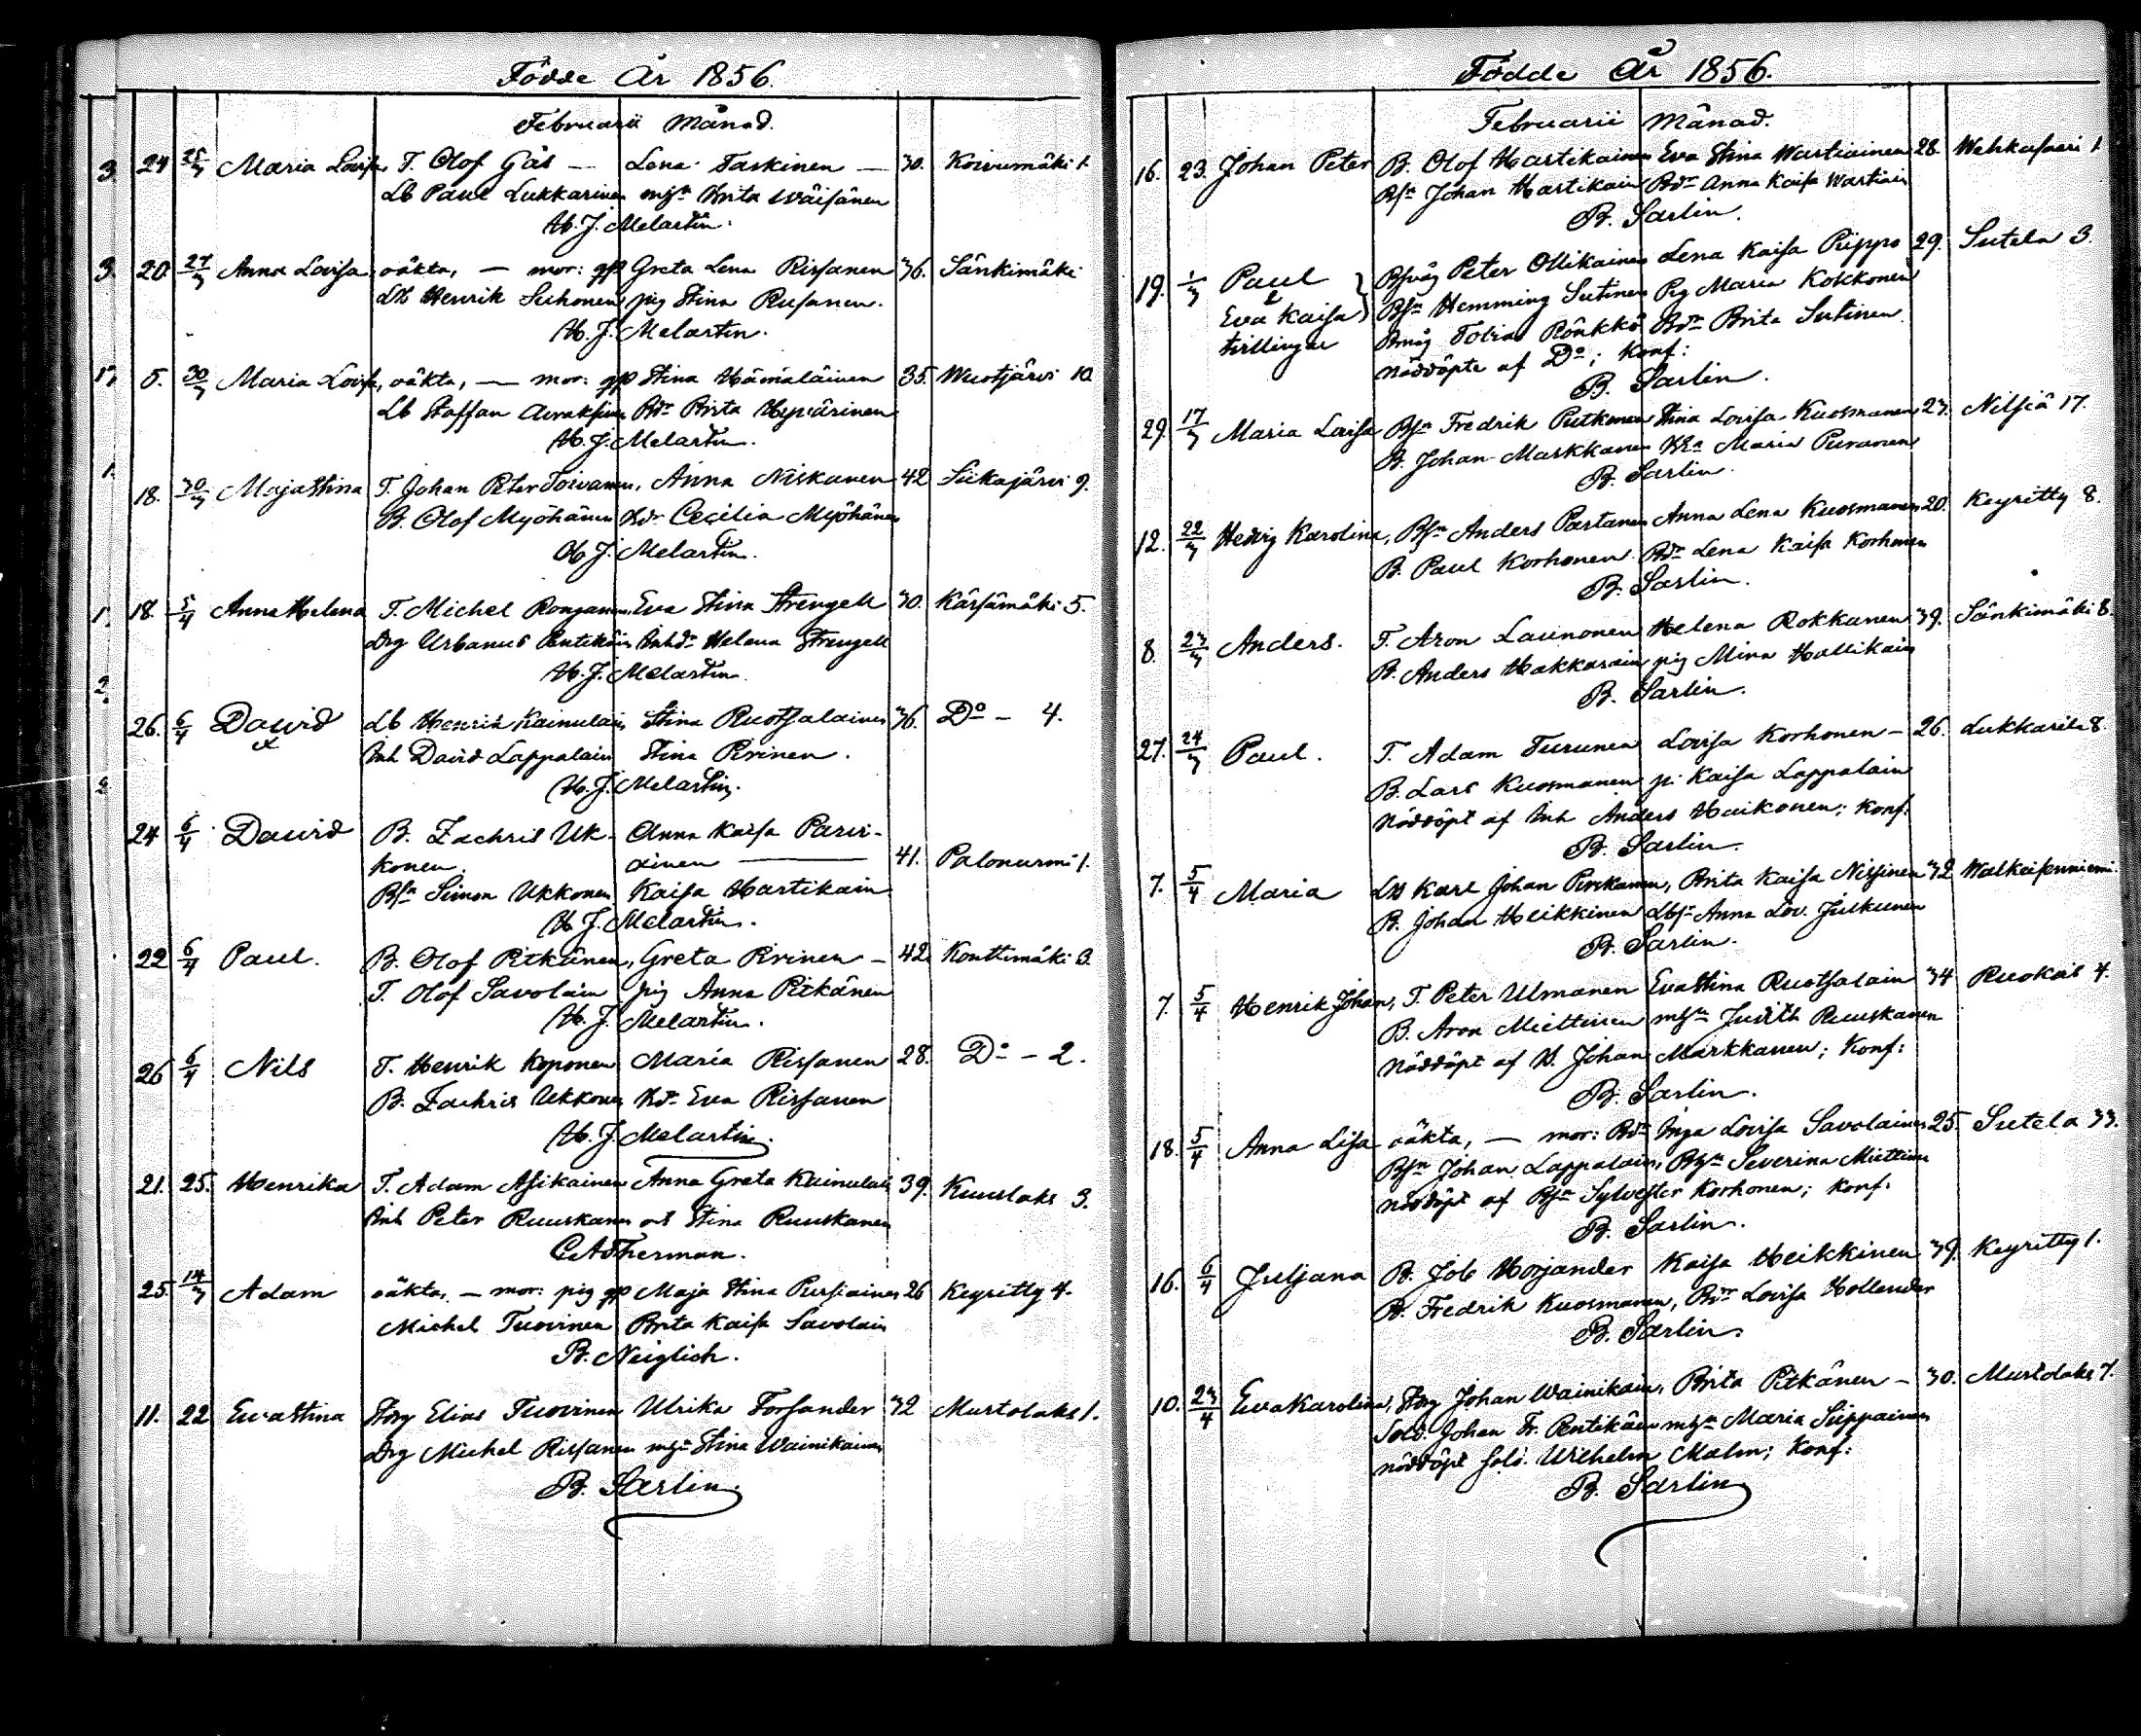 Födde År 1856.
Februarii Månad.
24 25/3 Maria Lovisa T. Olof Gås — Lena Taskinen — 30. Koivumäki 1.
Lb Paul Lukkarinen mgn Brita Wäisänen
H. J. Melartin.
20 27/3 Anna Lovisa oäkta, — mor: gp Greta Lena Rissanen 36. Sänkimäki
Lb Henrik Suhonen pig Stina Rusanen.
H. J. Melartin.
5. 30/3 Maria Lovisa, oäkta, — mor: gp Stina Hämäläinen 35. Wuotjärvi 10
Lb Staffan Bdr Brita Hyvärinen
H. J. Melartin.
18. 30/3 Maja Stina T. Johan Peter Toivanen, Anna Niskanen 42 Siikajärvi 9.
B. Olof Myöhänen Bdr Cecilia Myöhänen
H. J. Melartin.
18. 5/4 Anna Helena T. Michel Ronganen, Eva Stina Strengell 30. Kärsämäki 5.
Drg Urbanus Pentikäin Inhdr Helena Strengell
H. J. Melartin.
26. 6/4 David Lb Henrik Kainulain Stina Ruotsalainen 36. Do — 4.
Inh David Lappalain Stina Pirinen.
H. J. Melartin.
24 6/4 David B. Zachris Uk- Anna Kaisa Parvi-
konen. ainen — 41. Palonurmi 1.
Bsn Simon Ukkonen Kaisa Hartikain
H. J. Melartin.
22 6/4 Paul. B. Olof Pitkänen, Greta Pirinen — 42. Konttimäki 3.
T. Olof Savolain pig Anna Pitkänen
H. J. Melartin.
26 6/4 Nils T. Henrik Koponen Maria Rissanen 28. Do — 2.
B. Zachris Ukkonen Bdr Eva Rissanen
H. J. Melartin.
21. 25. Henrika T. Adam Asikainen Anna Greta Kainulain 39. Kuuslaks 3.
Inh Peter Ruuskanen och Stina Ruuskanen
C A Therman.
25. 14/3 Adam oäkta, — mor: pig gp Maja Stina Pursiainen 26 Keyritty 4.
Michel Tuovinen Brita Kaisa Savolain
B. Neiglich.
11. 22 Eva Stina Strg Elias Tuovinen Ulrika Forsander 32 Murtolaks 1.
Drg Michel Rissanen mgn Stina Wainikainen
B. Sarlin.
Födde År 1856.
Februarii Månad.
16. 23. Johan Peter B. Olof Hartikainen Eva Stina Wartiainen 28. Wehkasaari 1
Bsn Johan Hartikain Bdr Anna Kaisa Wartiain
B. Sarlin.
19. 1/3 Paul Bsvåg Peter Ollikainen Lena Kaisa Piippo 29. Sutela 3.
& Eva Kaisa Bsn Hemming Sutinen Pig Maria Kokkonen
tvillingar Bmåg Tobias Rönkkö Bdr Brita Sutinen
nöddöpte af Do; Konf:
B. Sarlin.
29. 17/3 Maria Lovisa Bsn Fredrik Putkonen Stina Lovisa Kuosmanen 23. Nilsiä 17.
B. Johan Markkanen Maria Puranen
B. Sarlin.
12. 22/3 Hedvig Karolina, Bsn Anders Partanen Anna Lena Kuosmanen 20. Keyritty 8.
B. Paul Korhonen Bdr Lena Kaisa Korhonen
B. Sarlin.
8. 23/3 Anders. T. Aron Launonen Helena Rokkanen 39. Sänkimäki 8.
B. Anders Hakkarain pig Mina Hallikain
B. Sarlin.
27. 24/3 Paul. T. Adam Turunen Lovisa Korhonen — 26. Lukkarila 8.
B. Lars Kuosmanen pi Kaisa Lappalain
Nöddöpt af Inh Anders Haikonen; Konf:
B. Sarlin.
7. 5/4 Maria Lb Karl Johan Pirskanen, Brita Kaisa Nissinen 32 Walkeiseniemi.
B. Johan Heikkinen Lbhu Anna Lov. Julkunen
B. Sarlin.
7. 5/4 Henrik Johan, T. Peter Ulmanen Eva Stina Ruotsalain 34 Ruokais 4.
B. Aron Miettinen mgn Judith Ruuskanen
Nöddöpt af B. Johan Markkanen; Konf:
B. Sarlin.
18. 5/4 Anna Lisa oäkta, — mor: Bdr Inga Lovisa Savolainen 25. Sutela 33.
Bsn Johan Lappalain, Bhn Severina Miettinen
nöddöpt af Bsn Sylvester Korhonen; Konf:
B. Sarlin.
16. 6/4 Juljana B. Job Hojander Kaisa Heikkinen 39. Keyritty 1.
B. Fredrik Kuosmanen, Bdr Lovisa Hollender
B. Sarlin.
10. 23/4 Eva Karolina, Strg Johan Wainikain, Brita Pitkänen — 30. Murtolaks 7.
Sold. Johan Fr. Pentikäin mgn Maria Siippainen
nöddöpt sold. Wilhelm Malm; Konf:
B. Sarlin